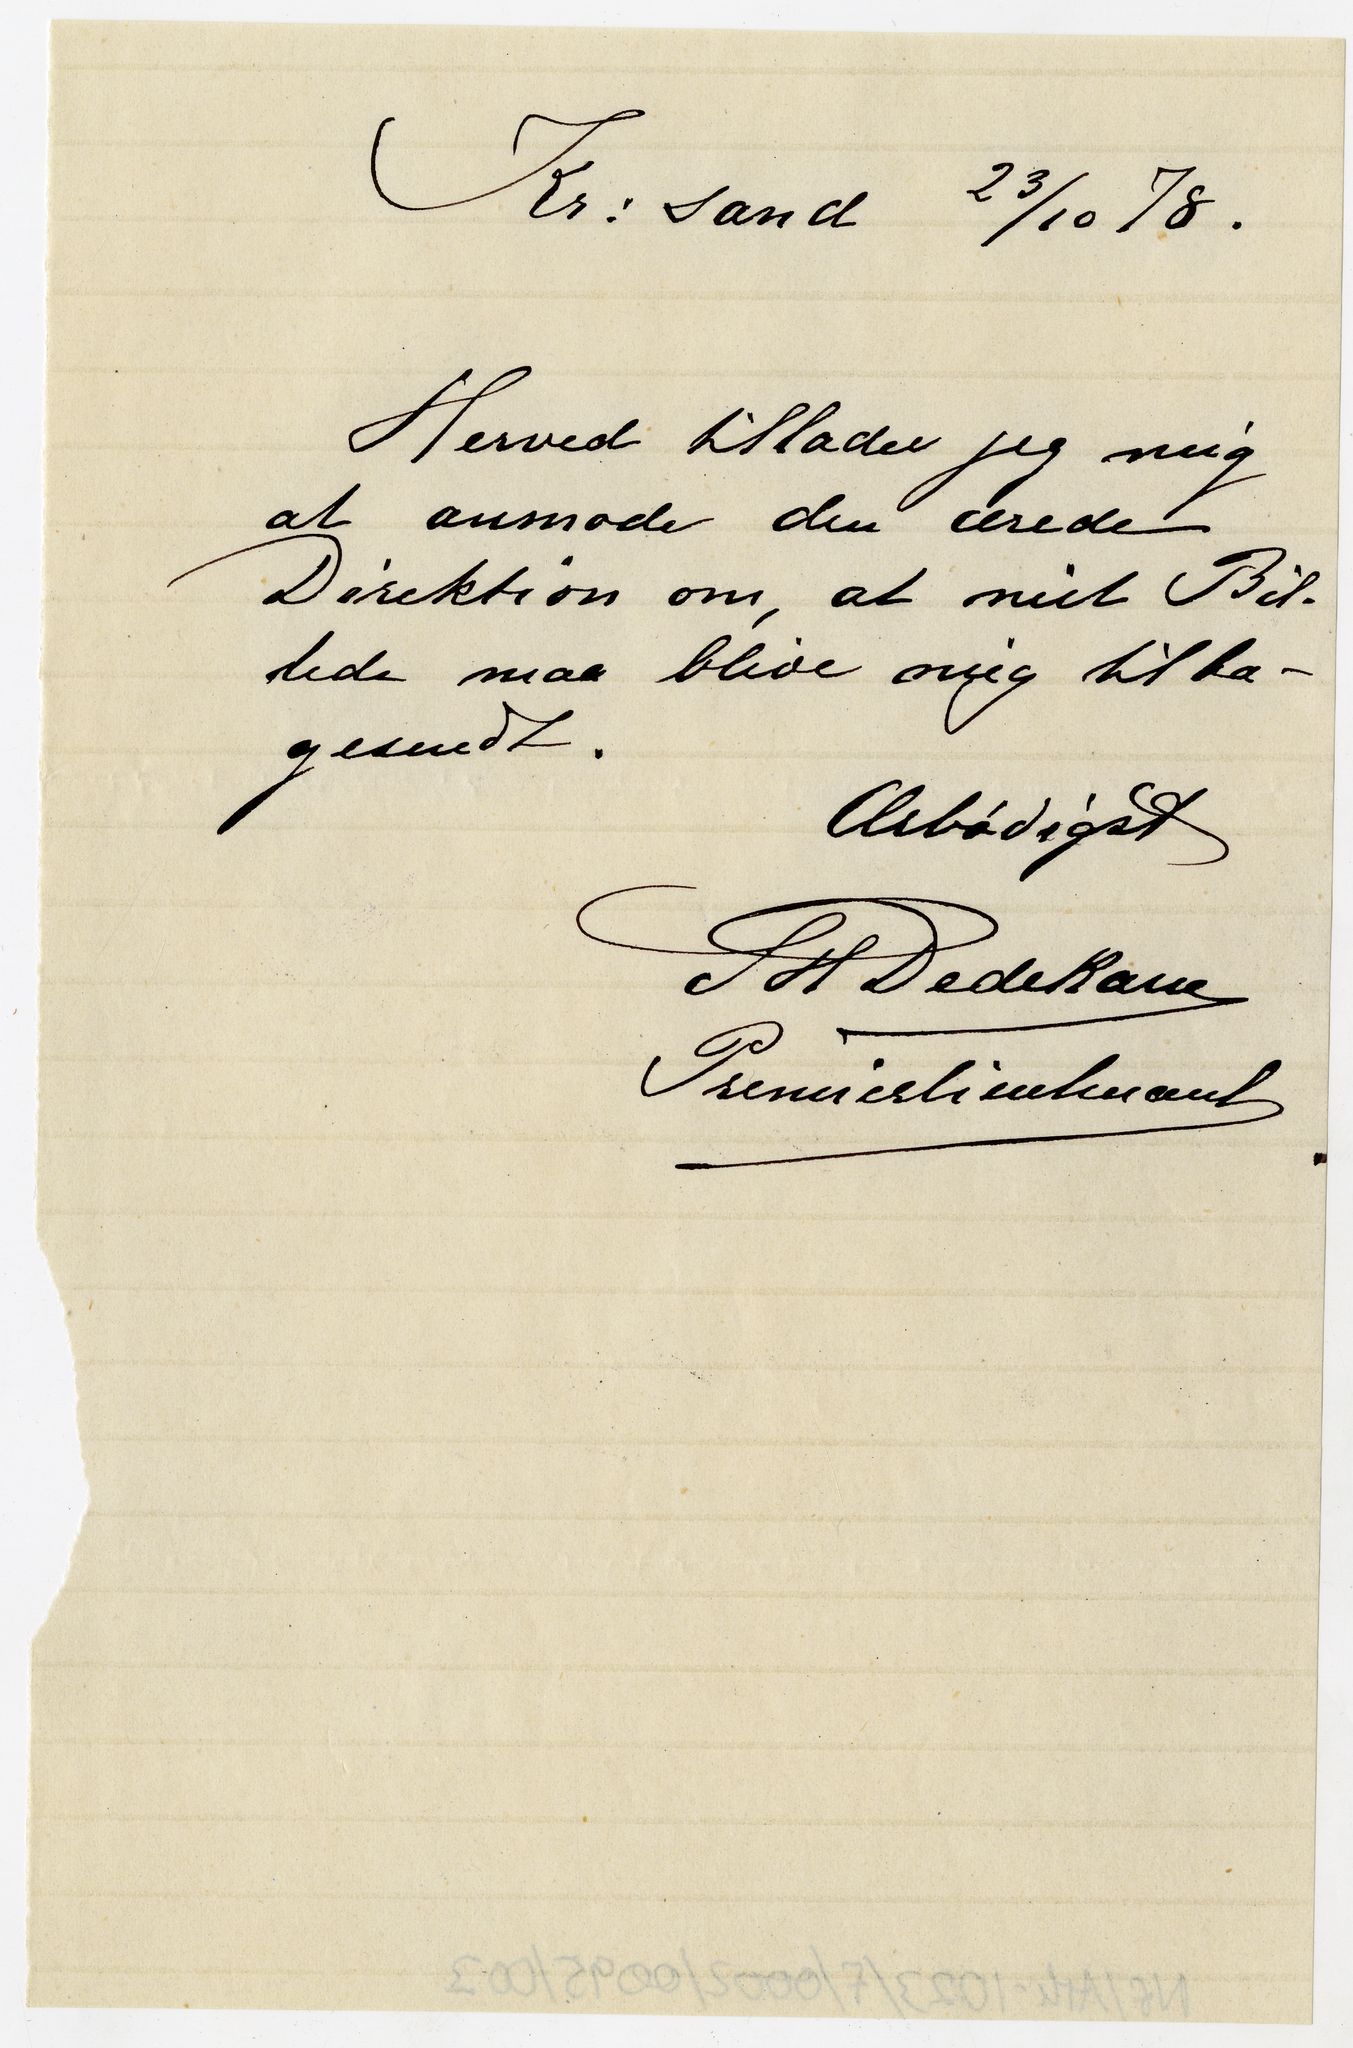 Kr: sand 23/10 78.
Herved tillader jeg mig
at anmode den ærede
Direktion om, at mit Bil-
lede maa blive mig tilba-
gesendt.
Ærbödigst
SH Dedekam
Premierlieutenant